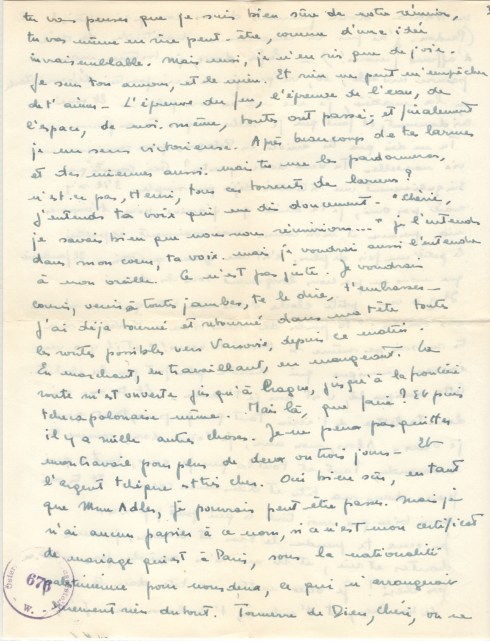 3
tu vas penser que je suis bien sûre de notre réunion,
tu vas même en rire peut-être, comme d'une idée
invraisemblable. Mais moi, je n'en ris que de joie.
Je suis ton amour, et le mien. Et rien ne peut m'empêcher
de t'aimer. L'épreuve du feu, l'épreuve de l'eau, de
l'espace, de moi-même, toutes ont passé, et finalement
je me sens victorieuse. Après beaucoup de tes larmes
et des miennes aussi. Mais tu me les pardonneras,
n'est-ce pas, Henri, tous ces torrents de larmes?
J'entends ta voix qui me dit doucement. "Chérie,
je savais bien que nous nous réunirions..." je l'entends
dans mon coeur, ta voix. Mais je voudrai aussi l'entendre
à mon oreille. Ce n'est pas juste. Je voudrais
courir, venir à toutes jambes, te le dire, t'embrasser —
j'ai déjà tourné et retourné dans ma tête toutes
les routes possibles vers Varsovie, depuis ce matin.
En marchant, en travaillant, en mangeant. La
route m'est ouverte jusqu'à Prague, jusqu'à la frontière
tchéco polonaise même. Mais là, que faire? Et puis
il y a mille autres choses. Je ne peux pas quitter
mon travail pour plus de deux ou trois jours — Et
l'argent tchèque est très cher. Oui bien sûr, en tant
que Mme Adler, je pourrais peut être passer. Mais je
n'ai aucun papier à ce nom, si ce n'est mon certificat
de mariage qui est à Paris, sous la nationalité
pour nous deux, ce qui n'arrangerait
rien du tout. Tonnerre de Dieu, Chéri, on ne
676
W.